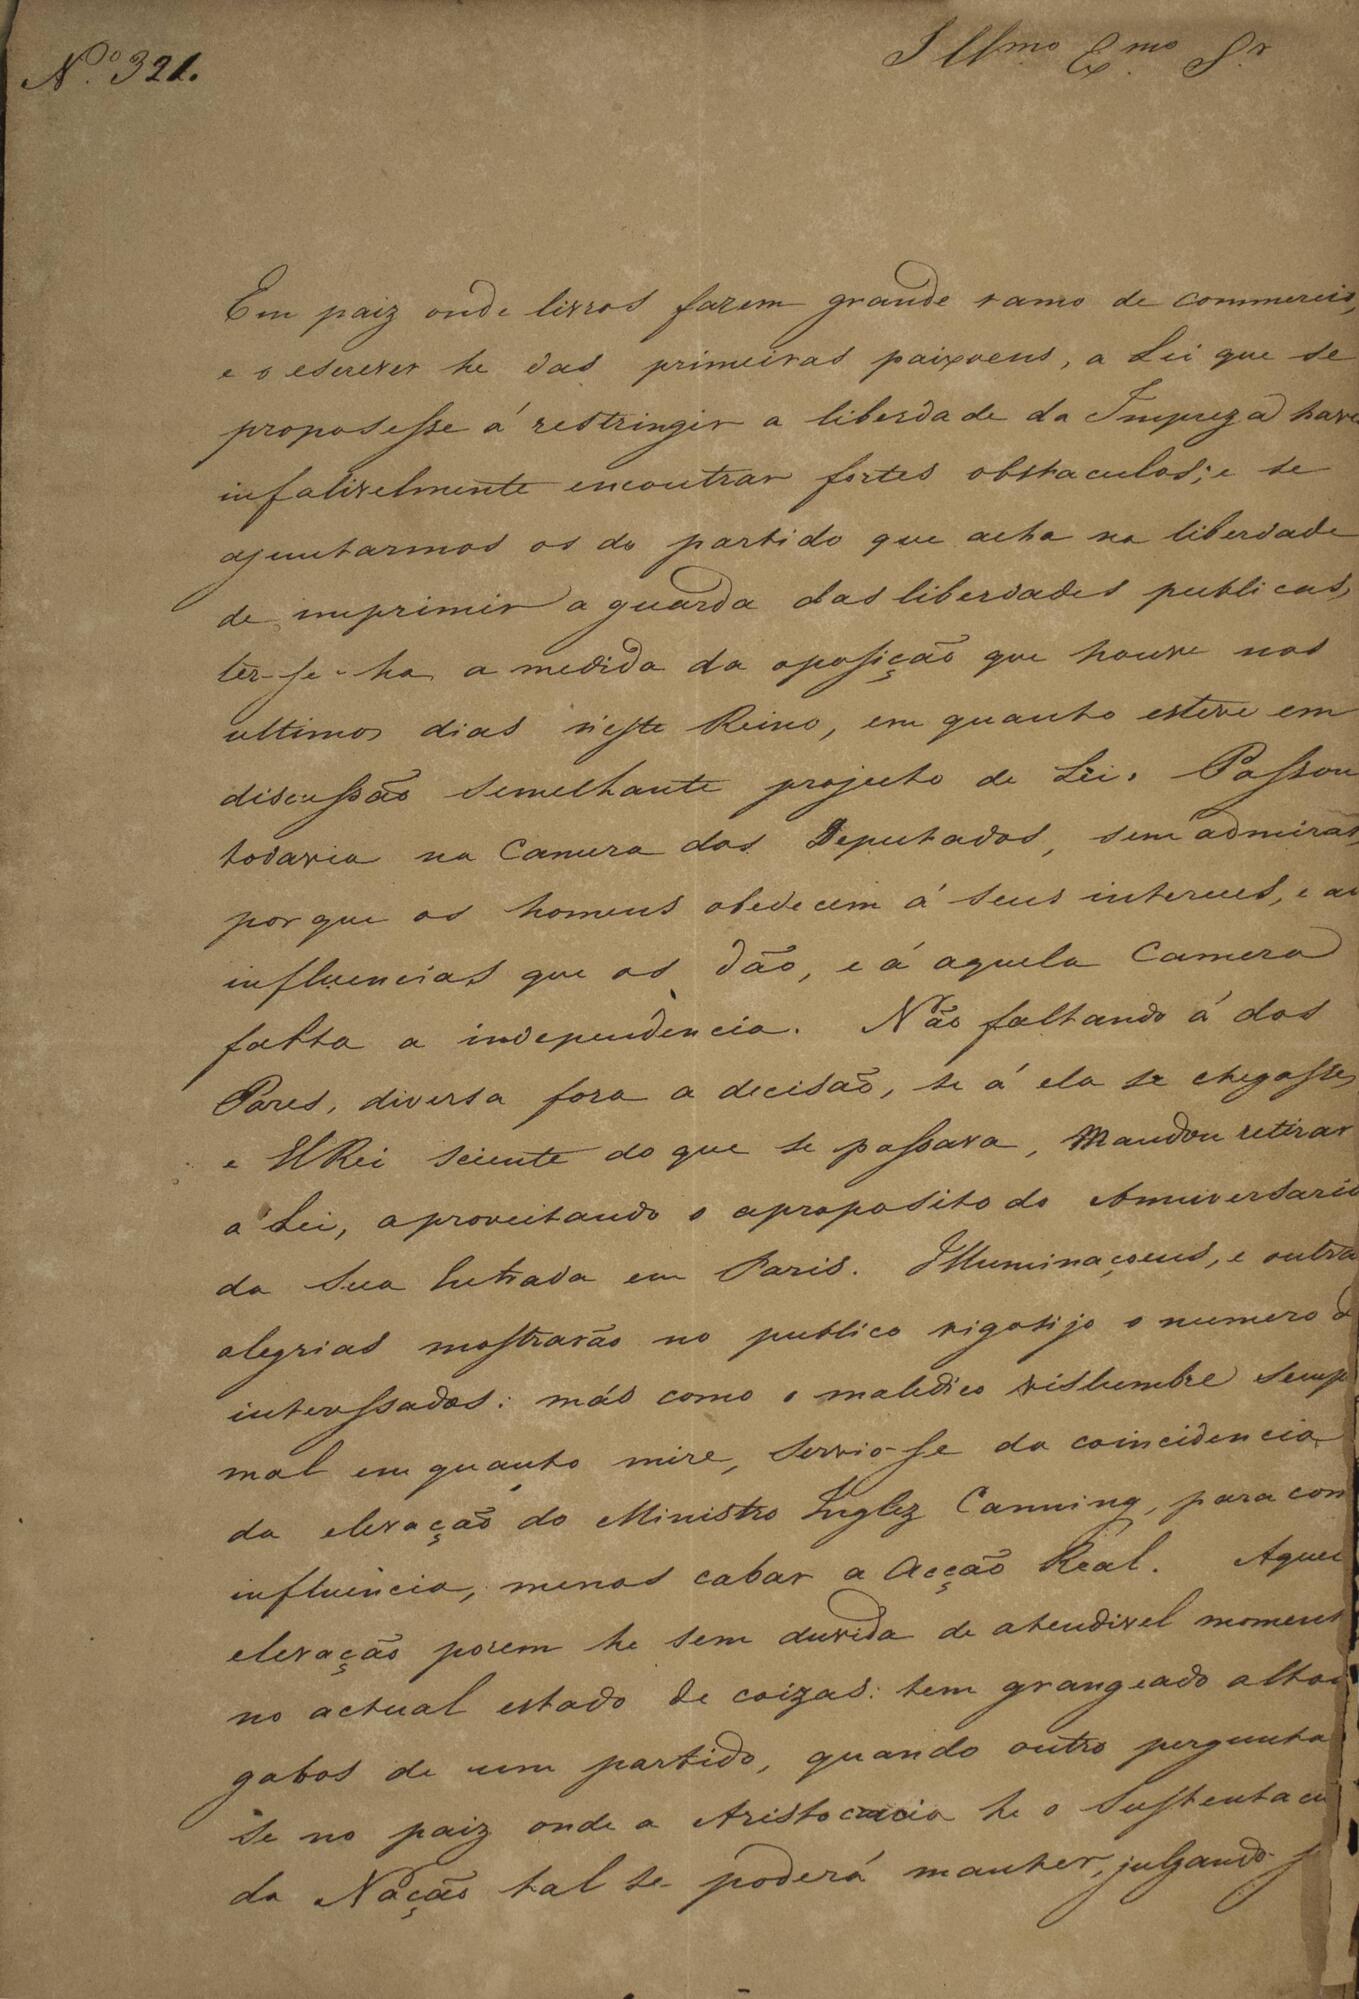 N.º 321.
Ill.mo Ex.mo Sr
Em paiz onde livros fazem grande ramo de commercio,
e o escrever he das primeiras paixoens, a Lei que se
proposesse á restringir a liberdade da Impreza have
infalivelmente encontrar fortes obstaculos; e se
ajuntarmos os do partido que acha na liberdade
de imprimir a guarda das liberdades publicas,
ter-se-ha a medida da oposição que houve nos
ultimos dias n'este Reino, em quanto esteve em
discussão semelhante projecto de Lei. Passou
todavia na Camera dos Deputados, sem admirar,
porque os homens obedecem á seus interesses, e as
influencias que os dão, e á aquela Camera
falta a independencia. Não faltando á dos
Pares, diversa fora a decisão, se á ela se chegasse,
e ElRei sciente do que se passava, Mandou retirar
a Lei, aproveitando o aproposito do Anniversario
da Sua Entrada em Paris. Illuminaçoens, e outra
alegrias mostrarão no publico rigosijo o numero d
interssados: más como o maledico vislumbre semp
mal em quanto mire, servio-se da coincidencia
da elevação do Ministro Inglez Canning, para com
influencia, menos cabar a Acção Real. Aquel
elevação porem he sem duvida de atendivel moment
no actual estado de coizas: tem grangeado altos
gabos de um partido, quando outro pergunta
se no paiz onde a Aristocracia he o Sustentacu
da Nação tal se poderá manter, julgando-